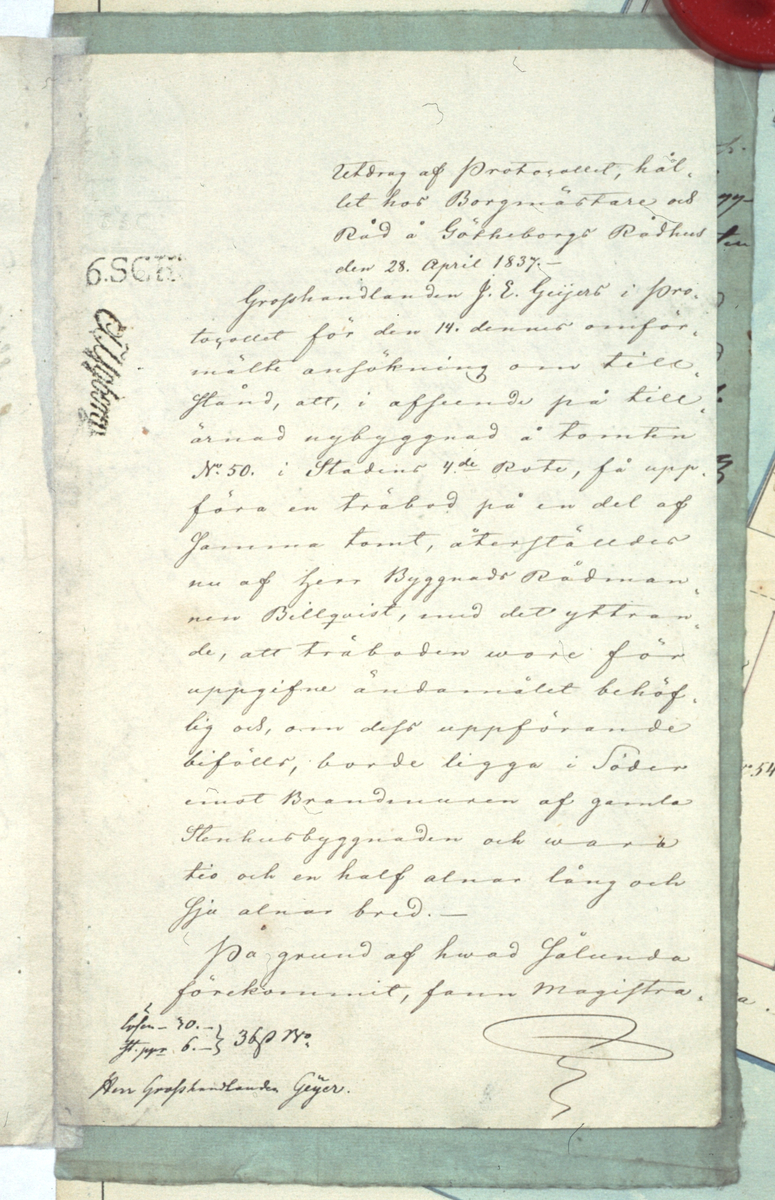 Utdrag af Protocollet, hål-
let hos Borgmästare och
Råd å Götheborgs Rådhus
den 28. April 1837.—
6.SCH.
Grosshandlanden J. E. Geijers i Pro-
tocollet för den 14. dennes omför-
mälte ansökning om till-
stånd, att, i afseende på till-
ärnad nybyggnad å tomten
No. 50. i Stadens 4.de Rote, få upp-
föra en träbod på en del af
samma tomt, återställdes
nu af Herr Byggnads Rådman-
nen Billqvist, med det yttran-
de, att träboden wore för
uppgifne ändamålet behöf-
lig och, om dess uppförande
bifölls, borde ligga i Söder
emot Brandmuren af gamla
Stenhusbyggnaden och wara
tio och en half alnar lång och
sju alnar bred.—
På grund af hwad sålunda
förekommit, fann Magistra-
Lösen — 30.—
St. ppr 6.— } 36 ß Bco
Herr Grosshandlanden Geijer.